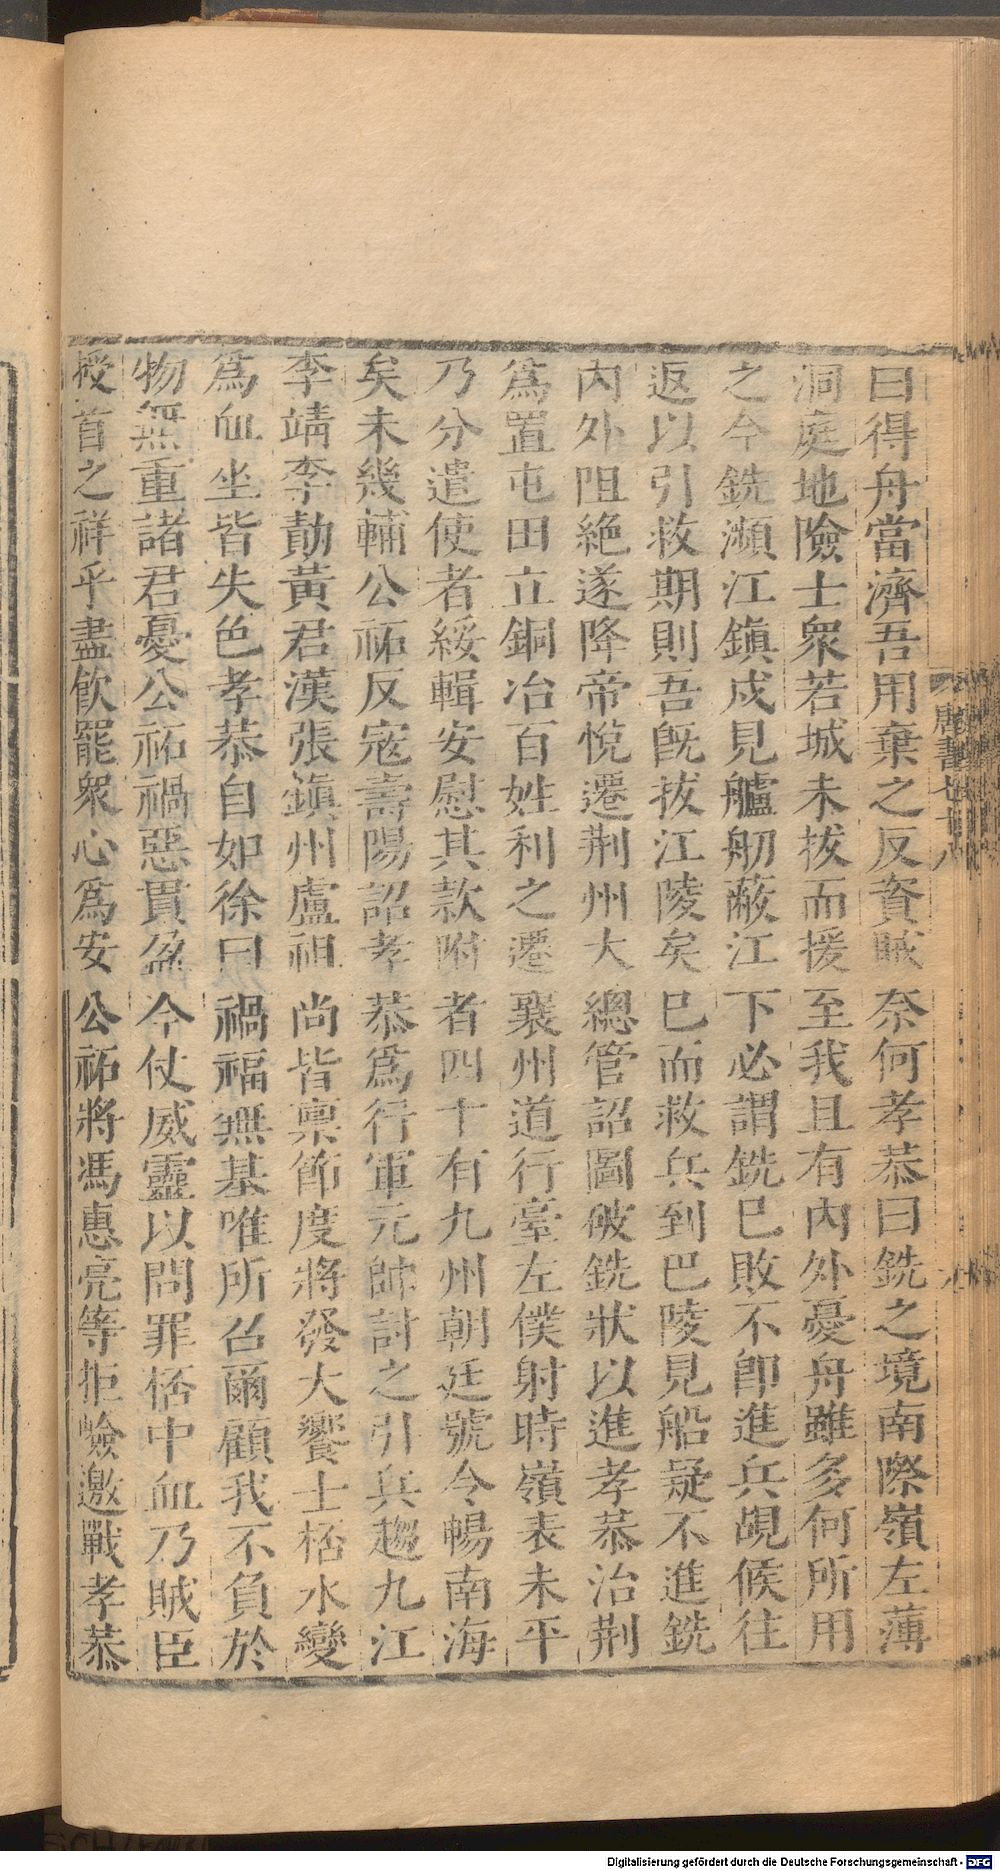 曰得舟當濟吾用棄之反資賊奈何孝恭曰銑之境南際嶺左薄
洞庭地險士衆若城未拔而援至我且有內外憂舟雖多何所用
之今銑瀕江鎮戍見艫舠蔽江下必謂銑已敗不卽進兵覘候往
返以引救期則吾旣拔江陵矣已而救兵到巴陵見船疑不進銑
內外阻絶遂降帝悅遷荆州大總管詔圖破銑狀以進孝恭治荆
爲置屯田立銅冶百姓利之遷襄州道行臺左僕射時嶺表未平
乃分遣使者綏輯安慰其款附者四十有九州朝廷號令暢南海
矣未幾輔公祏反寇壽陽詔孝恭爲行軍元帥討之引兵趨九江
李靖李勣黃君漢張鎮州盧祖尚皆稟節度將發大饗士桮水變
爲血坐皆失色孝恭自如徐曰禍福無基唯所召爾顧我不負於
物無重諸君憂公祏禍惡貫盈今仗威靈以問罪桮中血乃賊臣
授首之祥乎盡飮罷衆心爲安公祏將馮惠亮等拒嶮邀戰孝恭
唐書七十八
Digitalisierung gefördert durch die Deutsche Forschungsgemeinschaft - DFG